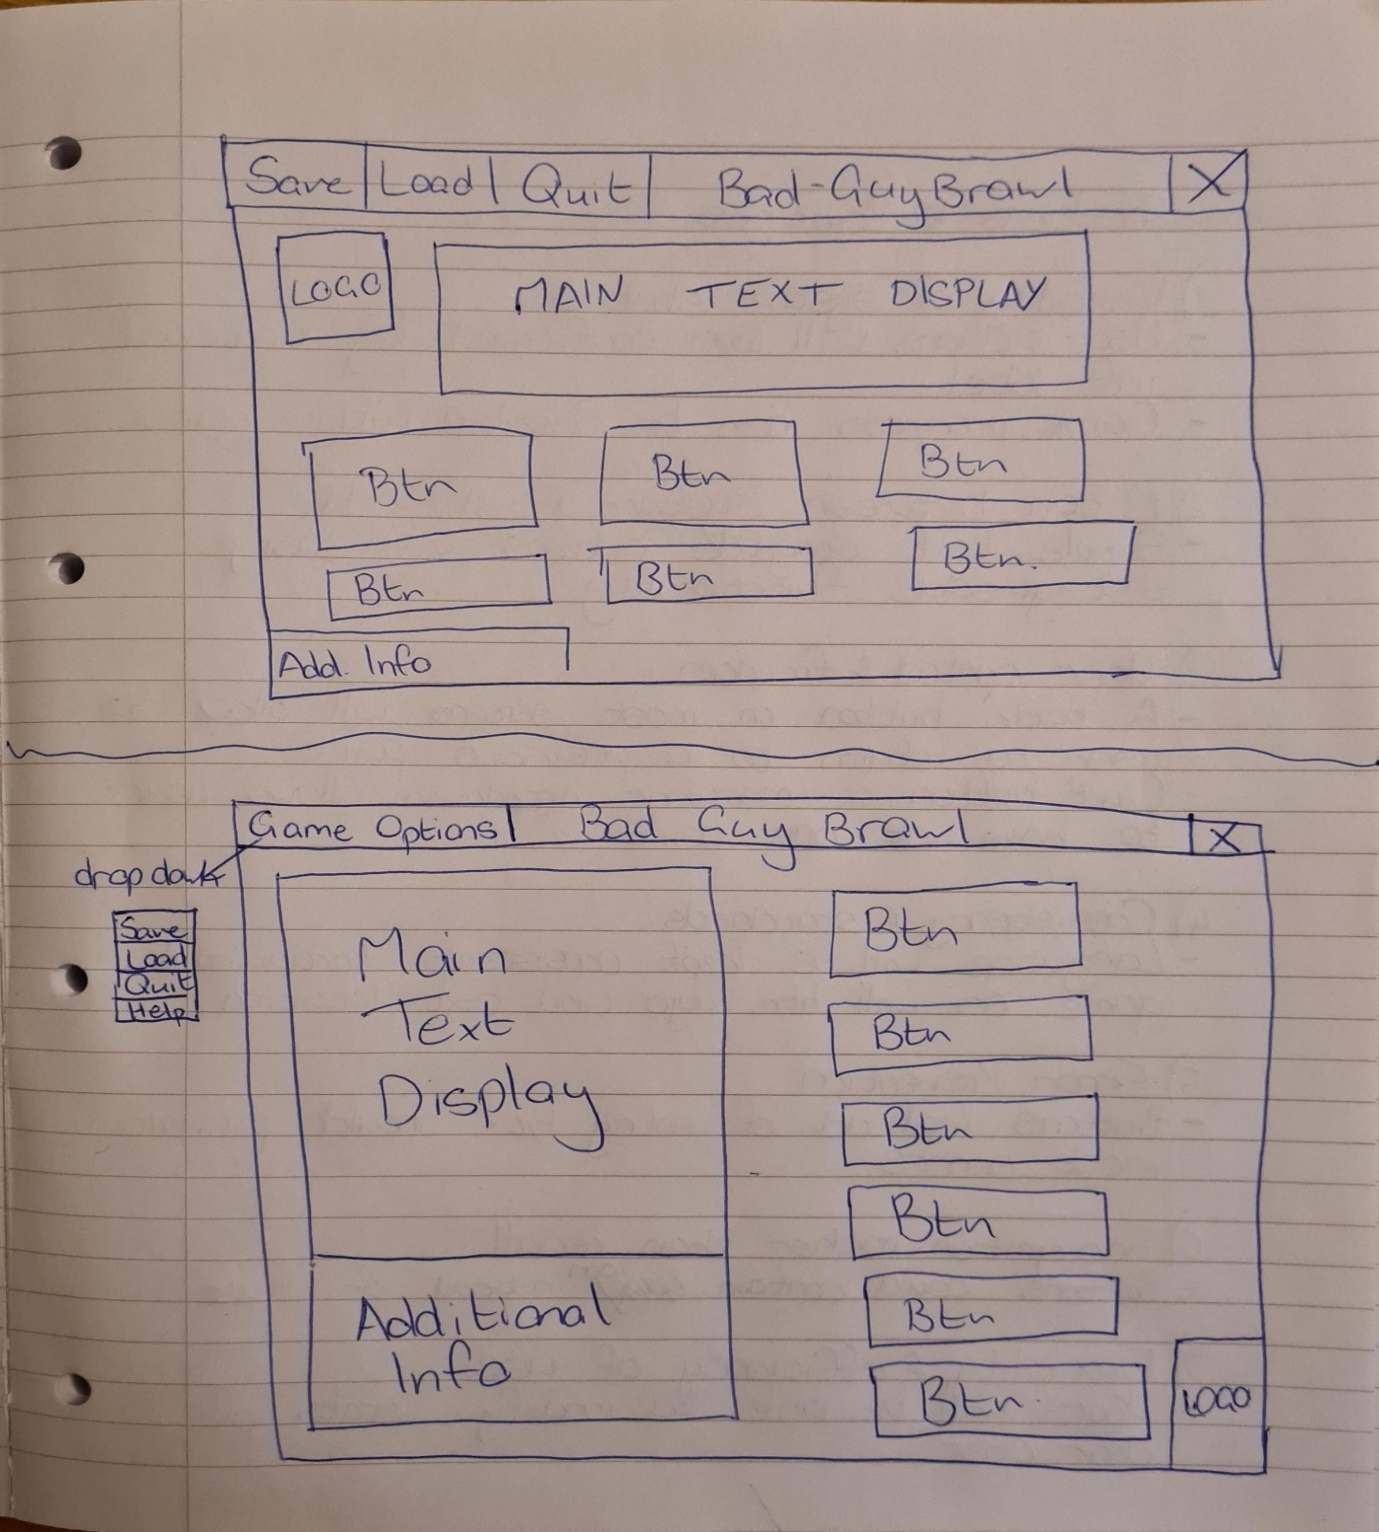 Save Load Quit Bad-Guy Brawl X
LOGO
MAIN TEXT DISPLAY
Btn Btn Btn
Btn Btn Btn.
Add. Info
Game Options Bad Guy Brawl X
drop down
Save
Load
Quit
Help
Main
Text
Display
Additional
Info
Btn
Btn
Btn
Btn
Btn
Btn.
LOGO